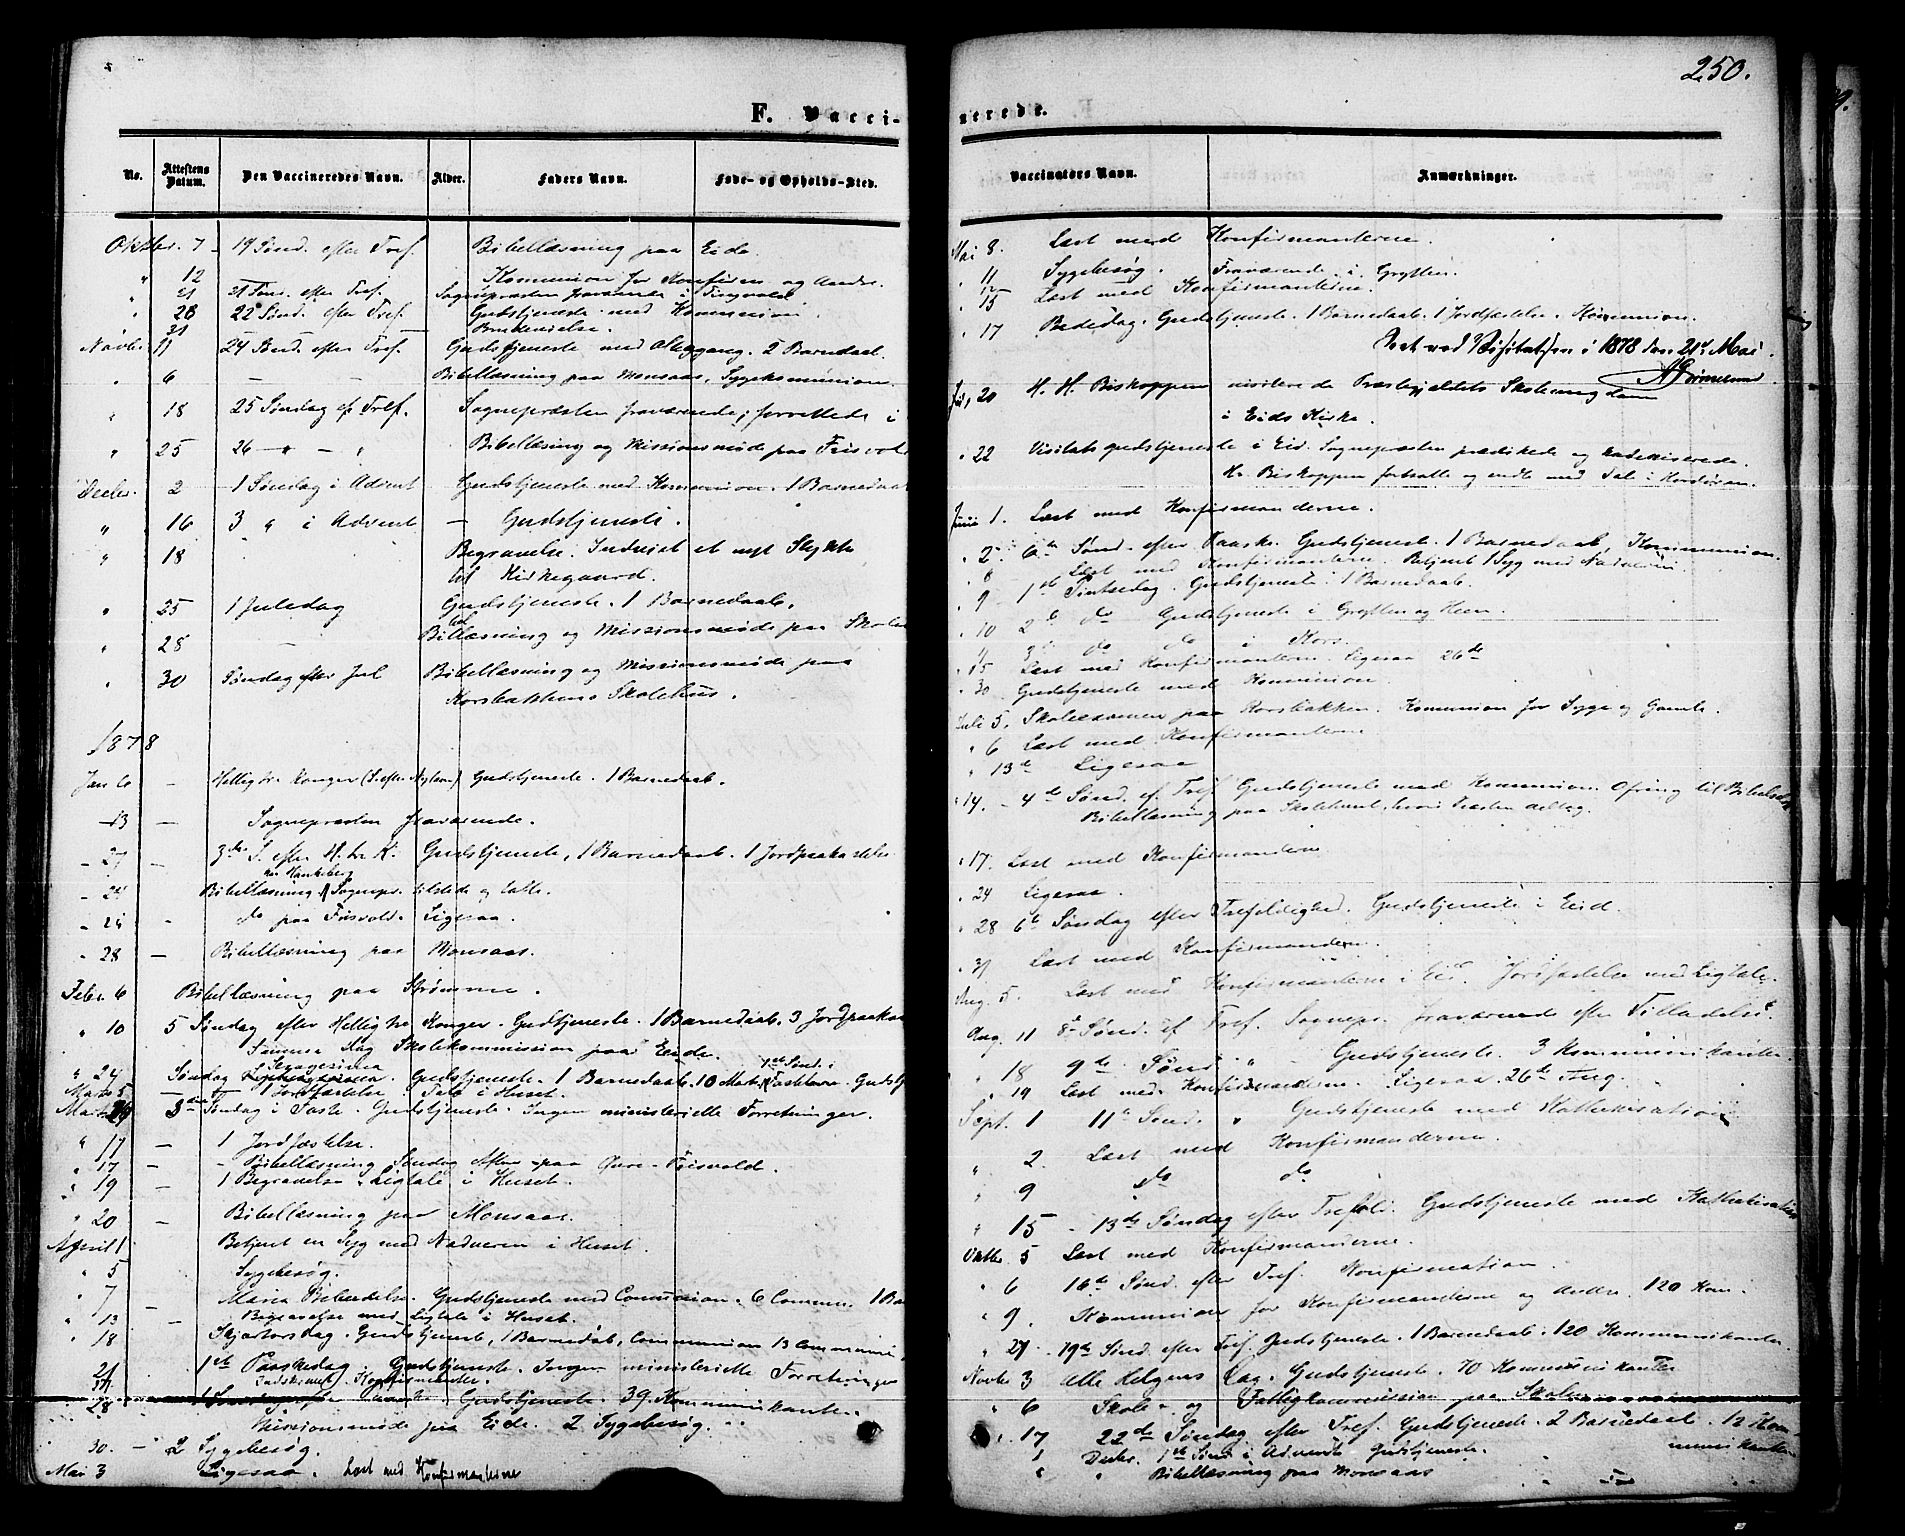 250.
F. Vacci-
nerede.
No.
Attestens Datum.
Den Vaccineredes Navn.
Alder.
Faders Navn.
Føde- og Opholds-Sted.
Vaccinatørs Navn.
Anmærkninger.
Oktbr. 7 - 19 Sønd. efter Tref. Bibellæsning paa Eide.
" 12 Kommunion for Konfirm. og Andre.
" 21 21 Sønd. efter Tref. Sognepræsten fraværende i
" 28 22 Sønd. efter Tref. Gudstjeneste med Kommunion.
31 Brudevielse.
Novbr 11 24 Sønd. efter Tref. Gudstjeneste med Altergang. 2 Barnedaab.
" 6 — — Bibellæsning paa Monsaas. Sygekommunion.
" 18 25 Søndag ef. Tref. Sognepræsten fraværende; forrettede i
" 25 26 — " — " Bibellæsning og Missionsmøde paa Frisvold
Decbr. 2 1 Søndag i Advent Gudstjeneste med Kommunion. 1 Barnedaab
" 16 3 " i Advent — Gudstjeneste.
" 18 Begravelse. Indviet et nyt Stykke
til Kirkegaard.
" 25 1 Juledag Gudstjeneste. 1 Barnedaab.
" 28 — Bibellæsning og Missionsmøde paa Skolen
" 30 Søndag efter Jul Bibellæsning og Missionsmøde paa
Korsbakkens Skolehus.
1878
Jan 6 - Hellig tr. Konger (S. efter Nytaar) Gudstjeneste. 1 Barnedaab.
-13 — Sognepræsten fraværende.
- 27 — 3de S. efter H. tr. K. Gudstjeneste, 1 Barnedaab. 1 Jordpaakastelse
- 24 Bibellæsning Sognepr. tilstede og talte.
- 25 - do paa Frisvold. Ligesaa.
" 28 — Bibellæsning paa Monsaas.
Febr. 6 Bibellæsning paa Strømme.
" 10 5 Søndag efter Hellig tre Konger. Gudstjeneste. 1 Barnedaab. 3 Jordpaakas
Samme Dag Skolekommission paa Eide.
" 24 Søndag Sexagesima. Gudstjeneste. 1 Barnedaab. 1ste Sønd. i Faste Gudstj
Marts 5 — Jordfæstelse. Tale i Huset.
Marts 3die Søndag i Faste. Gudstjeneste. Ingen ministerielle Forretninger.
" 17 — 1 Jordfæstelse.
" 17 — - Bibellæsning Søndag Aften paa Øvre-Frisvold.
" 19 — 1 Begravelse. Ligtale i Huset.
" 20 — Bibellæsning paa Monsaas.
April 1 Betjent en Syg med Nadveren i Huset.
" 5 Sygebesøg.
" 7 — Maria Bebudelse. Gudstjeneste med Communion. 6 Commun. 1 Bar
" 13 — Begravelse med Ligtale i Huset.
" 18 Skjærtorsdag. Gudstjeneste, 1 Barnedåb, Communion 13 Communi
21 1ste Paaskedag. Gudstjeneste. Ingen ministerielle Forretninger
Indskrevet Konfirmander.
28 1 Søndag efter Paaske Gudstjeneste. 39 Kommunikanter.
Missionsmøde paa Eide. 2 Sygebesøg.
30. — 2 Sygebesøg.
Mai 3 Ligesaa. Læst med Konfirmanterne
Mai 8. Læst med Konfirmanterne.
" 11 Sygebesøg. Fraværende i Grytten.
" 15 Læst med Konfirmanterne.
" 17 Bededag. Gudstjeneste. 1 Barnedaab. 1 Jordfæstelse. Kommunion.
Seet ved Visitatsen i 1878 den 21de Mai.
20 H. H. Biskoppen visiterede Præstegjeldets Skoleungdom
i Eids Kirke.
" 22 Visitatsgudstjeneste i Eid. Sognepræsten prædikede og katekiserede.
Hr. Biskoppen fortsatte og endte med Tale i Kordøren.
Juni 1. Læst med Konfirmanderne.
" 2 6te Sønd. efter Paaske. Gudstjeneste. 1 Barnedaab Kommunion.
" 8 - Læst med Konfirmanterne. Betjent 1 Syg med Nadveren
" 9 1ste Pintsedag. Gudstjeneste. 1 Barnedaab.
" 10 2de do Gudstjeneste i Grytten og Heen.
" 11 3de do do i Kors.
" 15 Læst med Konfirmanterne. Ligesaa 26de
" 30 Gudstjeneste med Kommunion.
Juli 5. Skoleexamen paa Korsbakken. Kommunion for Syge og Gamle.
" 6 Læst med Konfirmanterne
" 13de Ligesaa
" 14. - 4de Sønd. ef. Tref. Gudstjeneste med Kommunion. Ofring til Bibelselsk
Bibellæsning paa Skolehuset, hvori Præsten deltog.
" 17. Læst med Konfirmanderne
" 24 Ligesaa.
" 28 6te Søndag efter Trefoldighed. Gudstjeneste i Eid.
" 31 Læst med Konfirmanderne.
Aug. 5. Læst med Konfirmanterne i Eid. Jordfæstelse med Ligtale.
Aug. 11 8de Sønd. ef. Tref. Sognepr. fraværende efter Tilladelse.
" 18 9de Sønd " - Gudstjeneste. 3 Kommunikanter.
" 19 Læst med Konfirmanderne. Ligesaa 26de Aug.
Sept. 1 11te Sønd. " Gudstjeneste med Kathekisation
" 2. Læst med Konfirmanderne.
" 9 do do
" 15 - 13de Søndag efter Trefold. Gudstjeneste med Kathekisation
Oktbr. 5 Læst med Konfirmanderne.
" 6 16de Sønd. efter Tref. Konfirmation.
" 9. Kommunion for Konfirmanterne og Andre. 120 Kom.
" 27 19de Sønd. efter Tref. Gudstjeneste. 1 Barnedaab. 120 Kommunikanter
Novbr 3 Alle Helgens Dag. Gudstjeneste. 70 Kommunikanter
" 6 Skole- og Fattigkommission paa Skolen
" 17 22de Søndag efter Tref. Gudstjeneste. 2 Barnedaab. 12 Kom-
munikanter
" 1 Decbr. 1ste Sønd. i Advent. Gudstjeneste.
" " Bibellæsning paa Monsaas